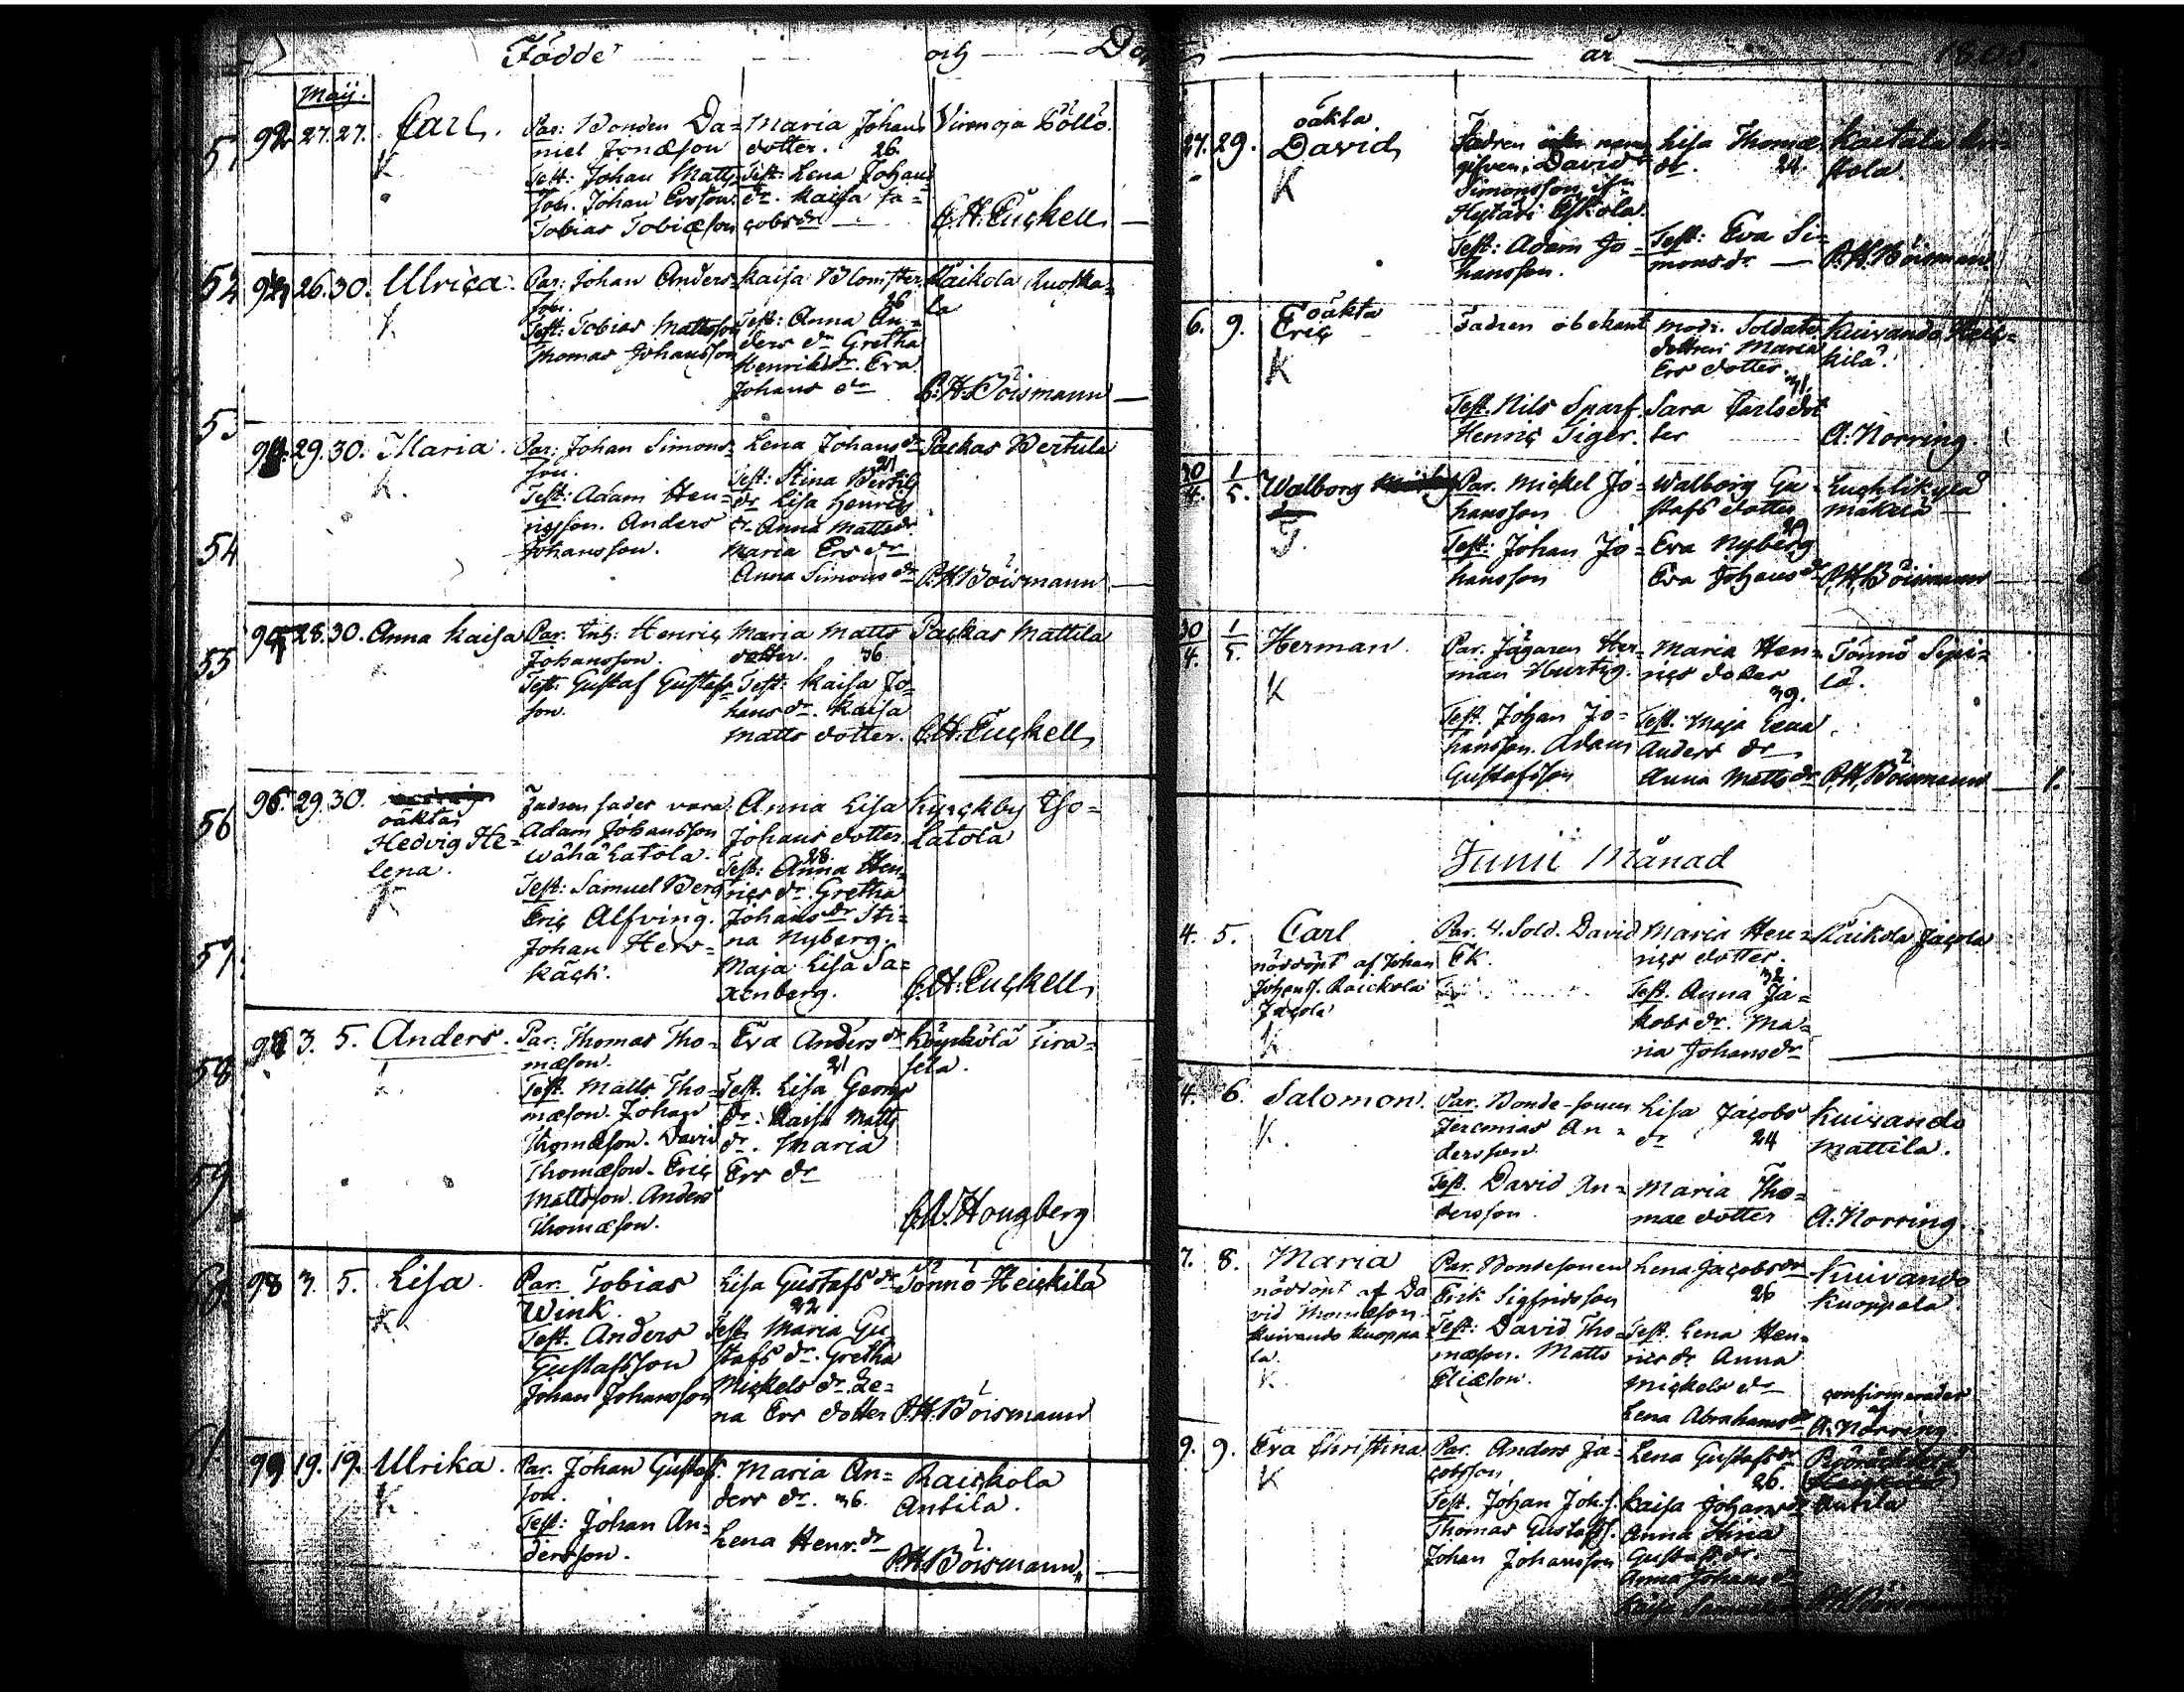 Födde och Dop
Maij.
92. 27. 27. Carl.
K
Par: Bonden Da=
niel Jonæson
Test: Johan Matts
son. Johan Ersson.
Tobias Tobiæson
Maria Johans
dotter. 26.
Test: Lena Johans
dr. Kaisa Ja=
cobsdr
Virenoja Böllö.
C.H. Euckell
52 26. 30. Ulrica.
K
Par: Johan Anders=
son.
Test: Tobias Mattsson
Thomas Johansson
Kaisa Blomster.
26
Test: Anna An=
ders dr Gretha
Henricsdr. Eva
Johans dr
Raikola Kuoska=
la
P.H. Böismann
53
29. 30. Maria.
K.
Par: Johan Simons=
son.
Test: Adam Hen=
ricsson. Anders
Johansson.
Lena Johans dr
Test: Stina Bertils
dr Lisa Henrics
dr. Anna Mattsdr.
Maria Ers dr
Anna Simons dr
Packas Bertula
P.H. Böismann
54
55
28. 30. Anna Kaisa
Par. Henric
Johansson.
Test: Gustaf Gustafs
son.
Maria Matts
dotter. 36
Test: Kaisa Jo=
hans dr. Kaisa
Matts dotter.
Packas Mattila
C.H. Euckell
56
96. 29. 30.
oäkta
Hedvig He=
lena.
K
Fadren
Adam Johansson
Wähä Latola.
Test: Samuel Berg
Eric Alfving.
Johan Hers=
käck.
Anna Lisa
Johans dotter.
28.
Test: Anna Hen=
rics dr. Gretha
Johans dr Sti=
na Nyberg.
Maja Lisa Sa=
xenberg.
Kyrckby Iso=
Latola
C.H. Euckell
57
58
3. 5. Anders.
Par. Thomas Tho=
mæson.
Test. Matts Tho=
mæson. Johan
Thomæson. David
Thomæson. Eric
Mattsson. Anders
Thomæson.
Eva Anders dr
21
Test. Lisa Georgs
dr. Kaisa Matts
dr. Maria
Ers dr
Hougberg
59
98 3. 5. Lisa.
K
Par. Tobias
Wink.
Test. Anders
Gustafsson
Johan Johansson
Lisa Gustafs dr
22
Test. Maria Gu
stafs dr. Gretha
Mickels dr. Le=
na Ers dotter
Tönnö Heickilä
P.H. Böismann
99 19. 19. Ulrika.
K
Par. Johan Gustafs.
son.
Test: Johan An=
dersson.
Maria An=
ders dr. 36.
Lena Henr. dr
Raickola
Antila.
P.H. Böismann
år 1805.
27. 29. oäkta
David
K
Fadren
gifven, David
Simonsson
Hytäri Eskola.
Test: Adam Jo=
hansson.
Lisa Thomæ
dr. 24.
Test: Eva Si=
mons dr.
P.H. Böismann.
6. 9. oäkta
Eric
K
Fadren obekant
Test. Nils Sparf.
Henric Siger.
Modr. Soldats
dottren Maria
Ers dotter.
31.
Sara Carlsdot
ter
Kuivando Heic=
kilä.
A: Norring
30/4. 1/5. Walborg
T.
Par. Mickel Jo=
hansson
Test: Johan Jo=
hansson
Walborg Gu=
stafs dotter
29
Eva Nyberg
Eva Johans dr
P.H. Böismann
30/4. 1/5. Herman.
K
Par. Jägaren Her=
man Hurtig.
Test. Johan Jo=
hansson. Adam
Gustafsson
Maria Hen=
rics dotter
39.
Test. Maja Lena
Anders dr
Anna Matts dr
Tönnö Sipi=
lä.
P.H. Böismann 1.
Junii Månad
4. 5. Carl
nöddöpt af Johan
Johanss. Raickola
Jacola
K
Par. V. Sold. David
Ek.
Maria Hen=
rics dotter.
32.
Test. Anna Ja=
kobs dr. Ma=
ria Johans dr
Raikola Jacola
4. 6. Salomon.
K.
Par. Bonde-sonen
Jeremias An=
dersson
Test. David An=
dersson.
Lisa Jacobs
dr 24
Maria Tho=
mae dotter
Kuivando
Mattila.
A: Norring.
7. 8. Maria
nöddöpt af Da
vid Thomæson.
Kuivando Kuoppa
la.
K
Par. Bondesonen
Erik Sigfridsson
Test: David Tho=
mæson. Matts
Eliæson.
Lena Jacobs dr
26
Test. Lena Hen=
rics dr Anna
Mickels dr
Lena Abrahams dr
Kuivando
Kuoppala
confirmerades
af
A: Norring.
9. 9. Eva Christina
K
Par. Anders Ja=
cobsson
Test. Johan Joh.s.
Thomas Gustafss.
Johan Johansson
Lena Gustafs dr
26.
Kaisa Johans dr
Anna Stina
Gustafs dr.
Anna Johans dr
Antila